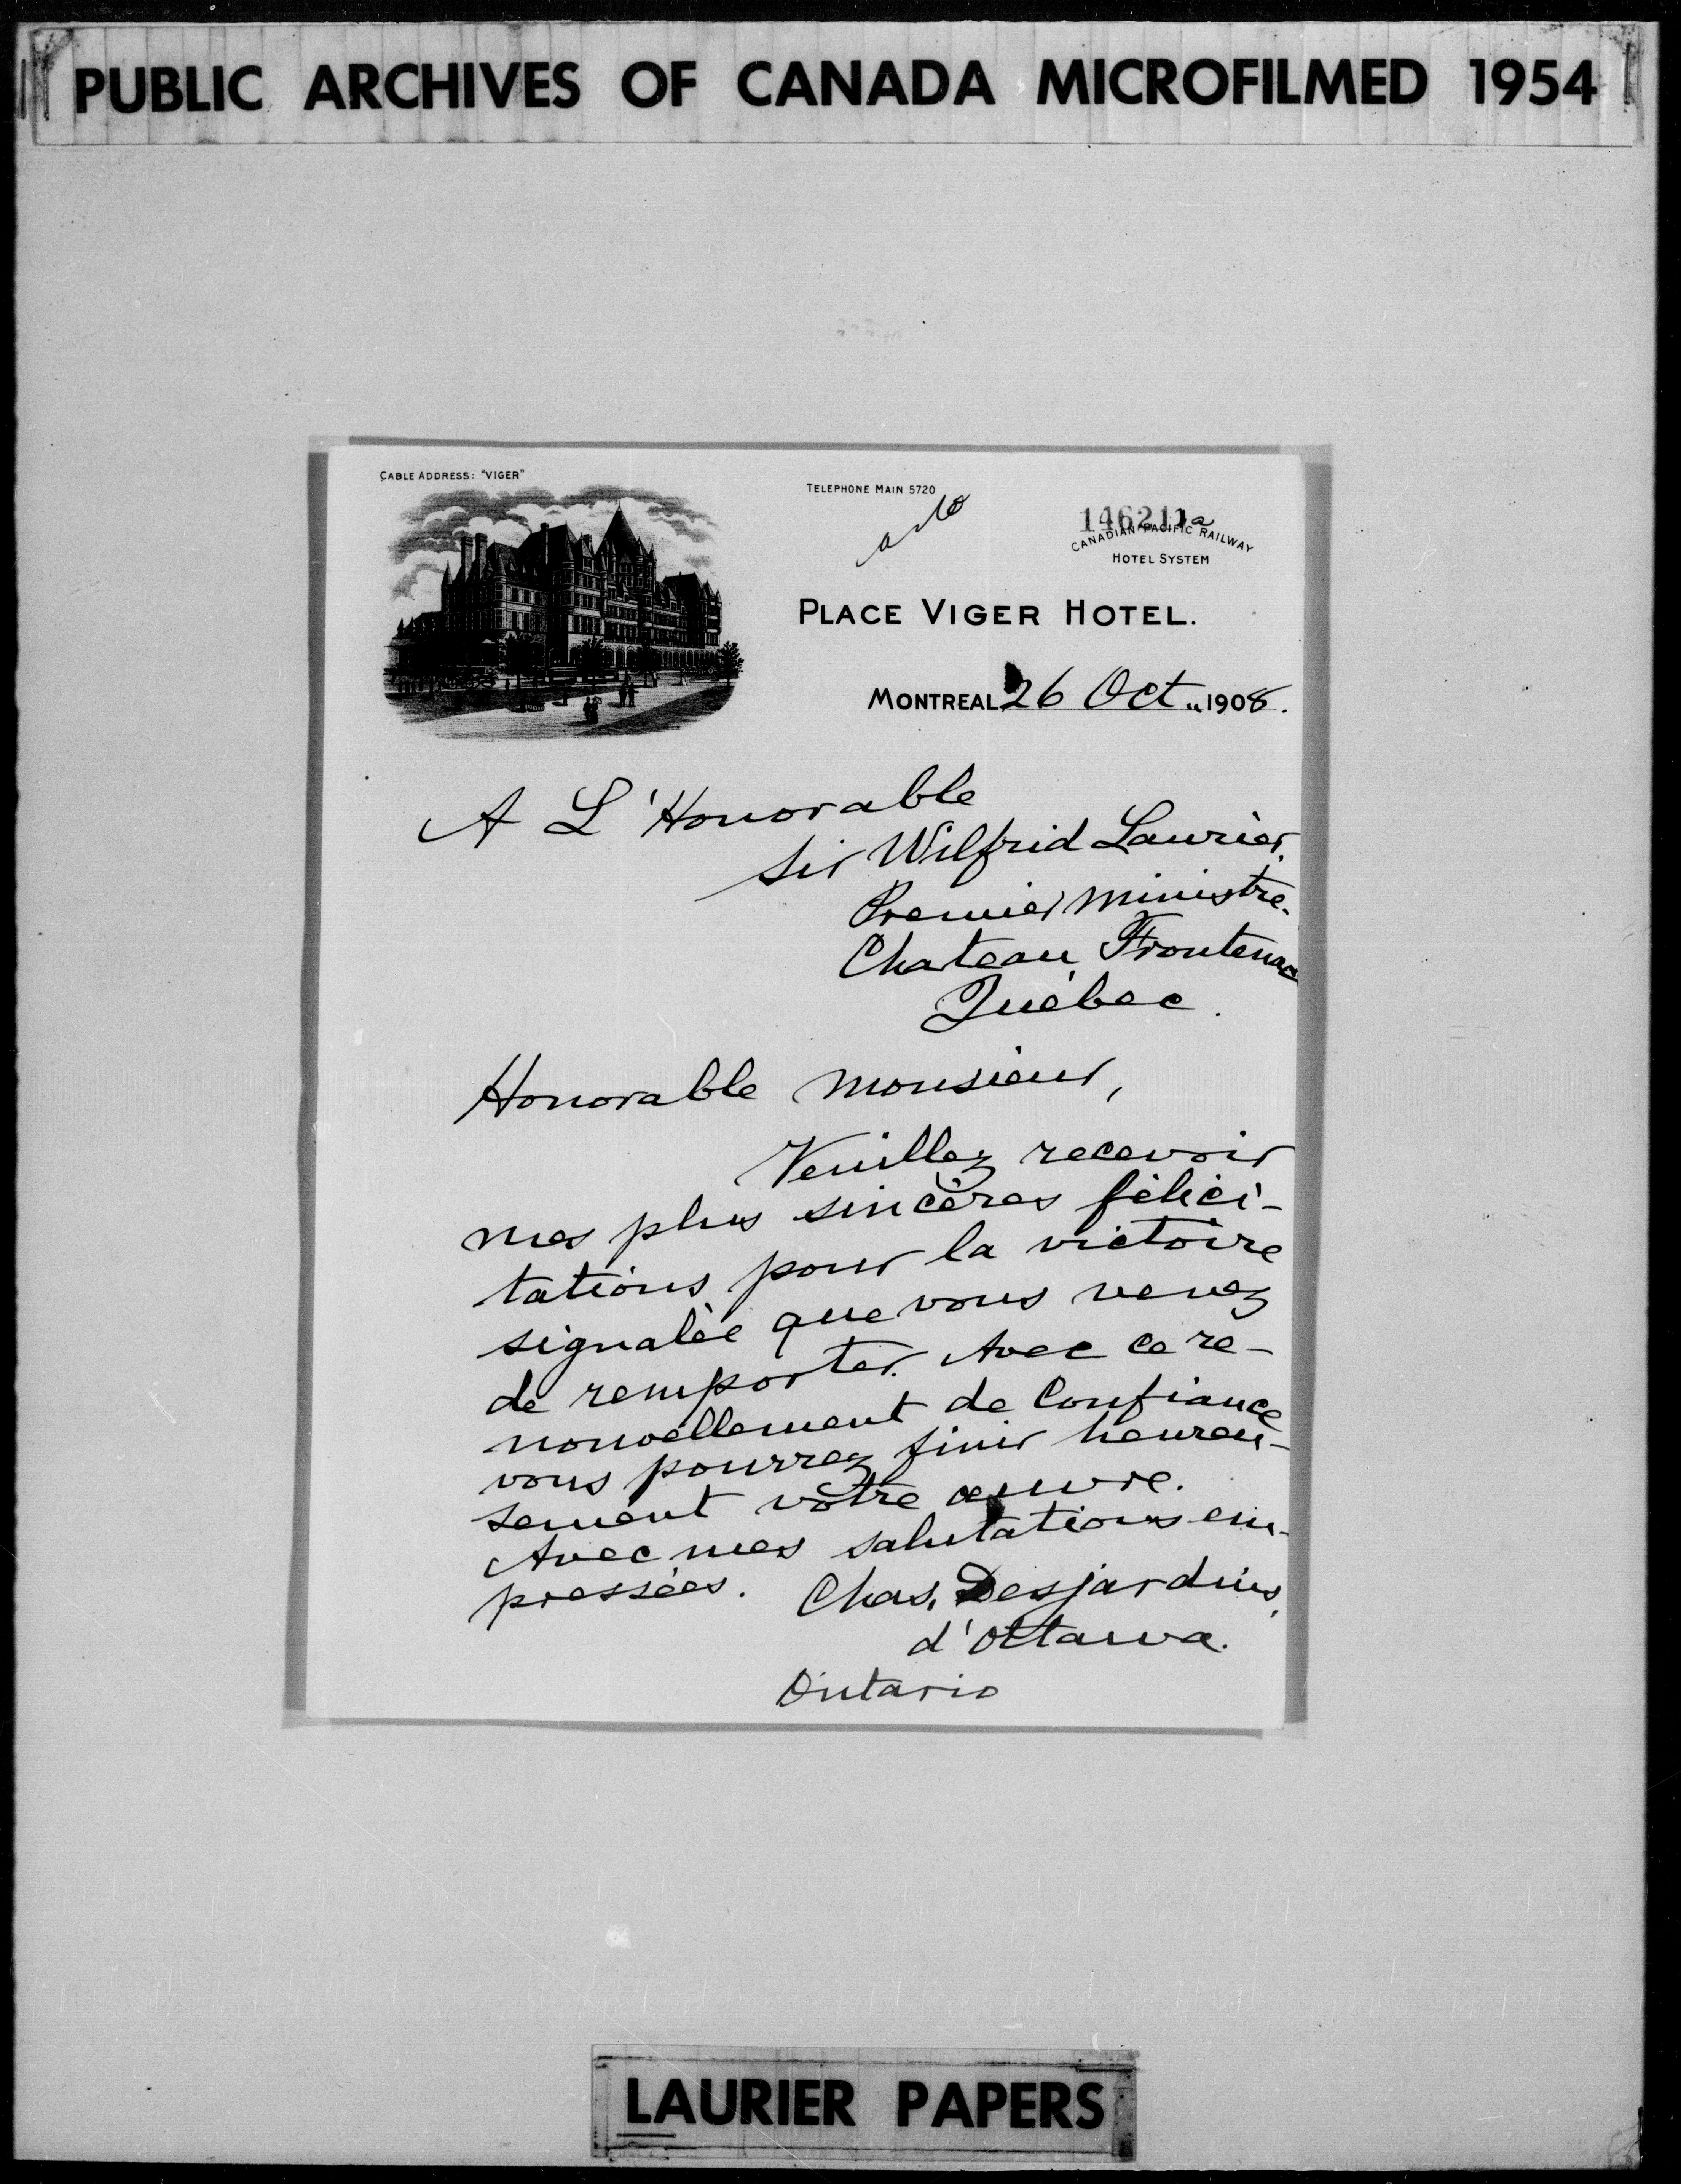 PUBLIC ARCHIVES OF CANADA MICROFILMED 1954
CABLE ADDRESS: "VIGER"
TELEPHONE MAIN 5720
146211a
CANADIAN PACIFIC RAILWAY
HOTEL SYSTEM
PLACE VIGER HOTEL.
MONTREAL 26 Oct. 1908.
A L'Honorable
Sir Wilfrid Laurier,
Premier Ministre.
Chateau Frontenac
Québec.
Honorable Monsieur,
Veuillez recevoir
mes plus sincères félici-
tations pour la victoire
signalée que vous venez
de remporter. Avec ce re-
nouvellement de Confiance
vous pourrez finir heureu-
sement vôtre oeuvre.
Avec mes salutations em-
pressées. Chas. Desjardins,
d'Ottawa.
Ontario
LAURIER PAPERS